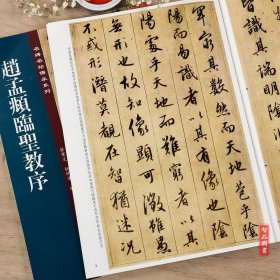 名碑名帖傳承系列
趙孟頫臨聖教序
罕窮其數然而天地苞乎陰
陽而易識者以其有象也陰
陽處乎天地而難窮者以其
無形也故知像顯可徵雖愚
不惑形潛莫覩在智猶迷況